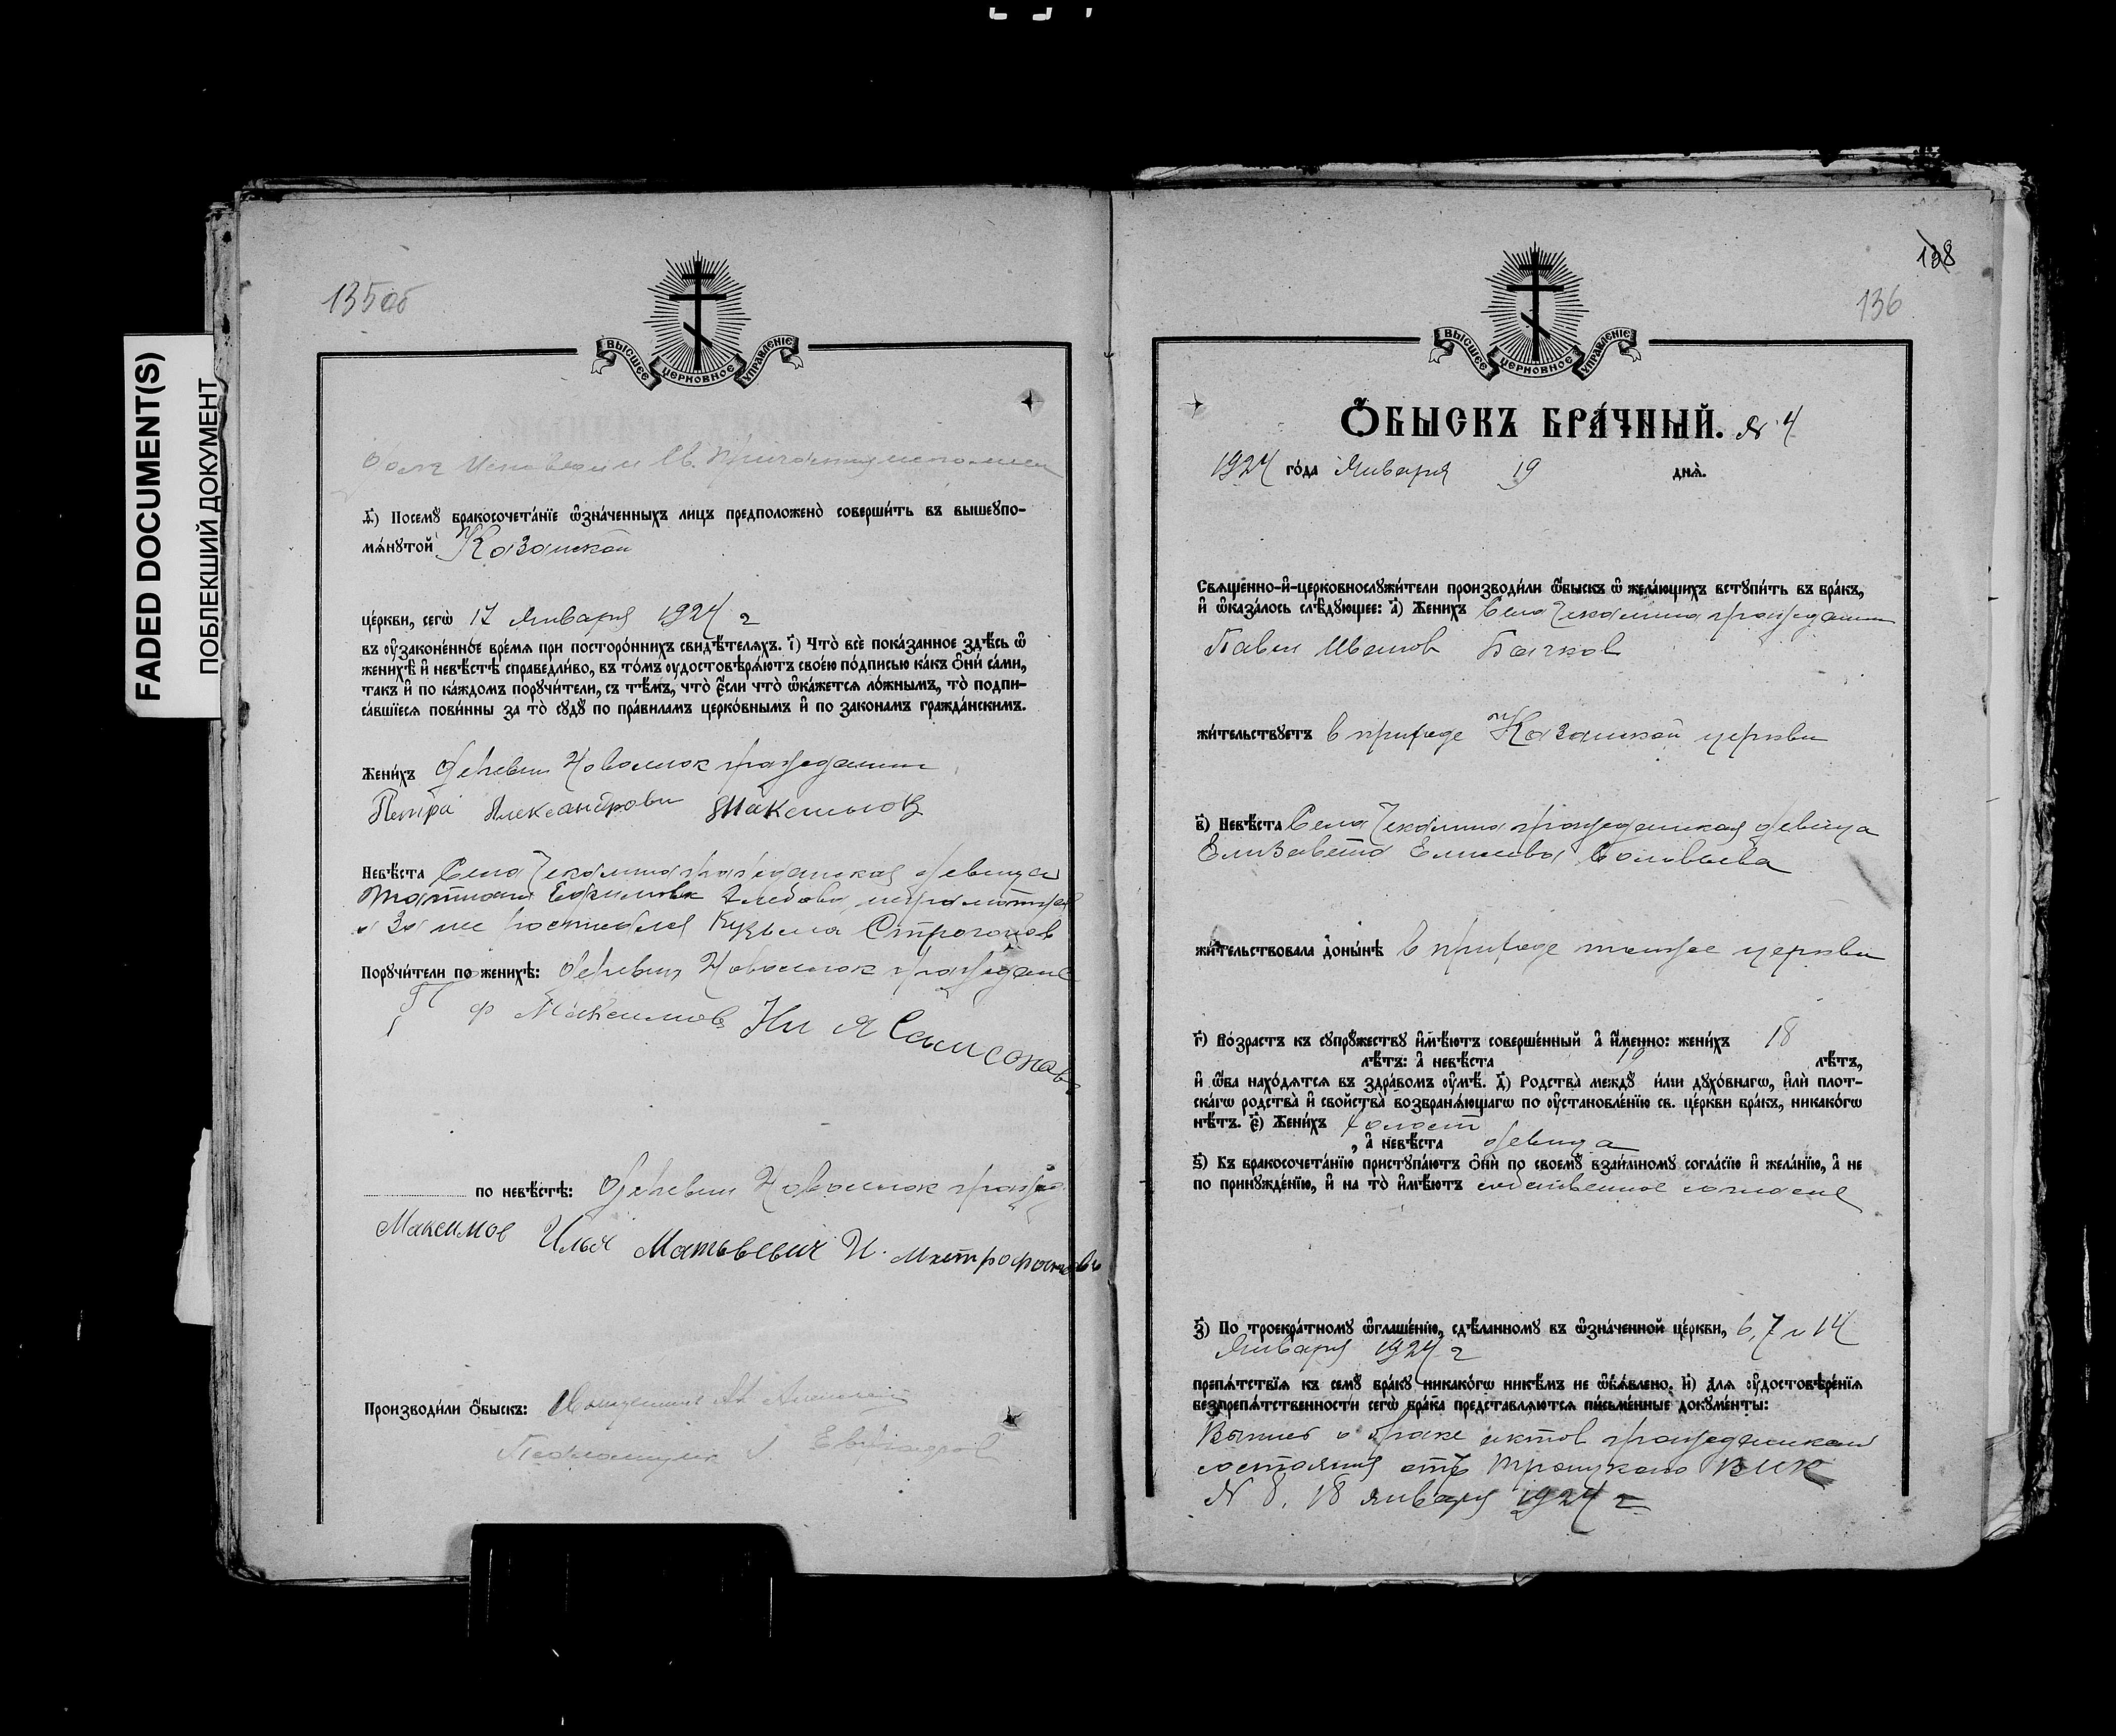 FADED DOCUMENT(S)
ПОБЛЕКШИЙ ДОКУМЕНТ
135об
ВЫСШЕЕ ЦЕРКОВНОЕ УПРАВЛЕНІЕ
долг Исповеди и Св. Причастия исполнен
д҃) Посемꙋ̀ бракосочета́нїе ѡзна́ченныхъ лицъ предположено̀ соверши́ть въ вышеꙋпо-
мѧ́нꙋтой Казанской
це́ркви, сегѡ̀ 17 Января 1924 г
въ ᲂу҆зако́ненное вре́мя при посторо́ннихъ свидѣ́телѧхъ. і҃) Что̀ всѐ пока́занное здѣ́сь ѡ҆
женихѣ̀ и҆ невѣ́стѣ справедли́во, въ то́мъ ᲂу҆достовѣрѧ́ютъ свое́ю по́дписью какъ ѻ҆нѝ са́ми,
такъ и҆ по ка́ждомъ порꙋчи́тели, съ тѣ́мъ, что̀ є҆́сли что̀ ѡ҆ка́жется ло́жнымъ, то̀ подпи-
са́вшїеся пови́нны за то̀ сꙋдꙋ̀ по пра́виламъ церко́внымъ и҆ по зако́намъ гражда́нскимъ.
Жени́хъ деревни Новоселок гражданин
Петра Александрови Максимов
Невѣ́ста Села Чекалина гражданская девица
Татиана Ефимова Глебова, неграмотная
а за нее росписался Кузьма Строгонов
Порꙋчи́тели по женихѣ̀: деревни Новоселок граждане
Ф Максимов Самсонов
по невѣ́стѣ: Деревни Новоселок гражд
Максимов Илья Матьвевич И. Митрофонов
Производи́ли ѻ҆́быскъ: Священник
Псаломщик Евграфов
138
136
ВЫСШЕЕ ЦЕРКОВНОЕ УПРАВЛЕНІЕ
Ѻ҆́БЫСКЪ БРА́ЧНЫЙ. № 4
1924 го́да Января 19 днѧ̀.
Свѧще́нно-и҆-церковнослꙋжи́тели производи́ли ѡ҆́быскъ ѡ҆ жела́ющихъ встꙋпи́ть въ бра́къ,
и҆ ѡ҆каза́лось слѣ́дꙋющее: а҃) Жени́хъ Села Чекалина гражданин
Павел Иванов Бачков
жи́тельствꙋетъ в приходе Казанской церкви
в҃) Невѣ́ста Села Чекалина гражданская девица
Елизавета Соловьева
жи́тельствовала до́нынѣ в приходе тойже церкви
г҃) Во́зрастъ къ сꙋпрꙋ́жествꙋ и҆мѣ́ютъ соверше́нный а҆ и҆́менно: жени́хъ 18
лѣ́тъ: а҆ невѣ́ста лѣ́тъ,
и҆ ѡ҆́ба нахо́дятся въ здра́вомъ ᲂу҆мѣ̀. д҃) Родства̀ междꙋ̀ и́ли дꙋхо́внагѡ, и҆лѝ плот-
ска́гѡ родства̀ и҆ свойства̀ возбранѧ́ющагѡ по ᲂу҆становле́нїю св. це́ркви бра́къ, никако́гѡ
нѣ́тъ. є҃) Жени́хъ холост
, а҆ невѣ́ста девица
ѕ҃) Къ бракосочета́нїю пристꙋпа́ютъ ѻ҆нѝ по своемꙋ̀ взаи́мномꙋ согла́сїю и҆ жела́нїю, а҆ не
по принꙋжде́нїю, и҆ на то̀ и҆мѣ́ютъ собственное согласие
з҃) По троекра́тномꙋ ѡ҆глаше́нїю, сдѣ́ланномꙋ въ ѡ҆зна́ченной це́ркви, 6, 7 и 14
Января 1924 г
препѧ́тствїя къ семꙋ̀ бра́кꙋ никако́гѡ никѣ́мъ не ѡ҆б̾ѧ́влено. и҃) Для ᲂу҆достовѣре́нїя
безпрепѧ́тственности сегѡ̀ бра́ка представлѧ́ются пи́сьменные докꙋме́нты:
Выпись о браке актов гражданскаго
состояния отъ Троицкаго ВИК
№ 8, 18 января 1924 г